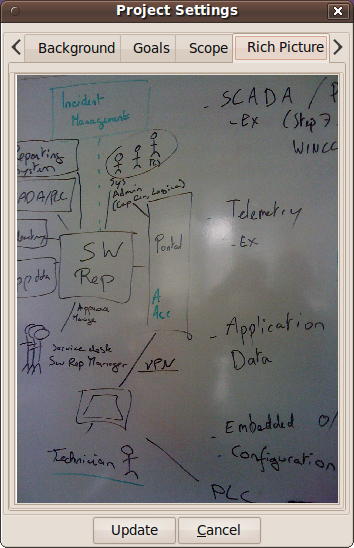 Project Settings
Background
Goals
Scope
Rich Picture
Incident
Management
SCADA / P
- Ex (Step 7
WINCC
Reporting
System
Sys
Admin
ADA/PLC
- Telemetry
- Ex
Portal
SW
Rep
A
Acc
Approve
Manage
- Application
Data
Service desk
SW Rep Manager
VPN
- Embedded O/
- Configuration
Technician
PLC
Update
Cancel